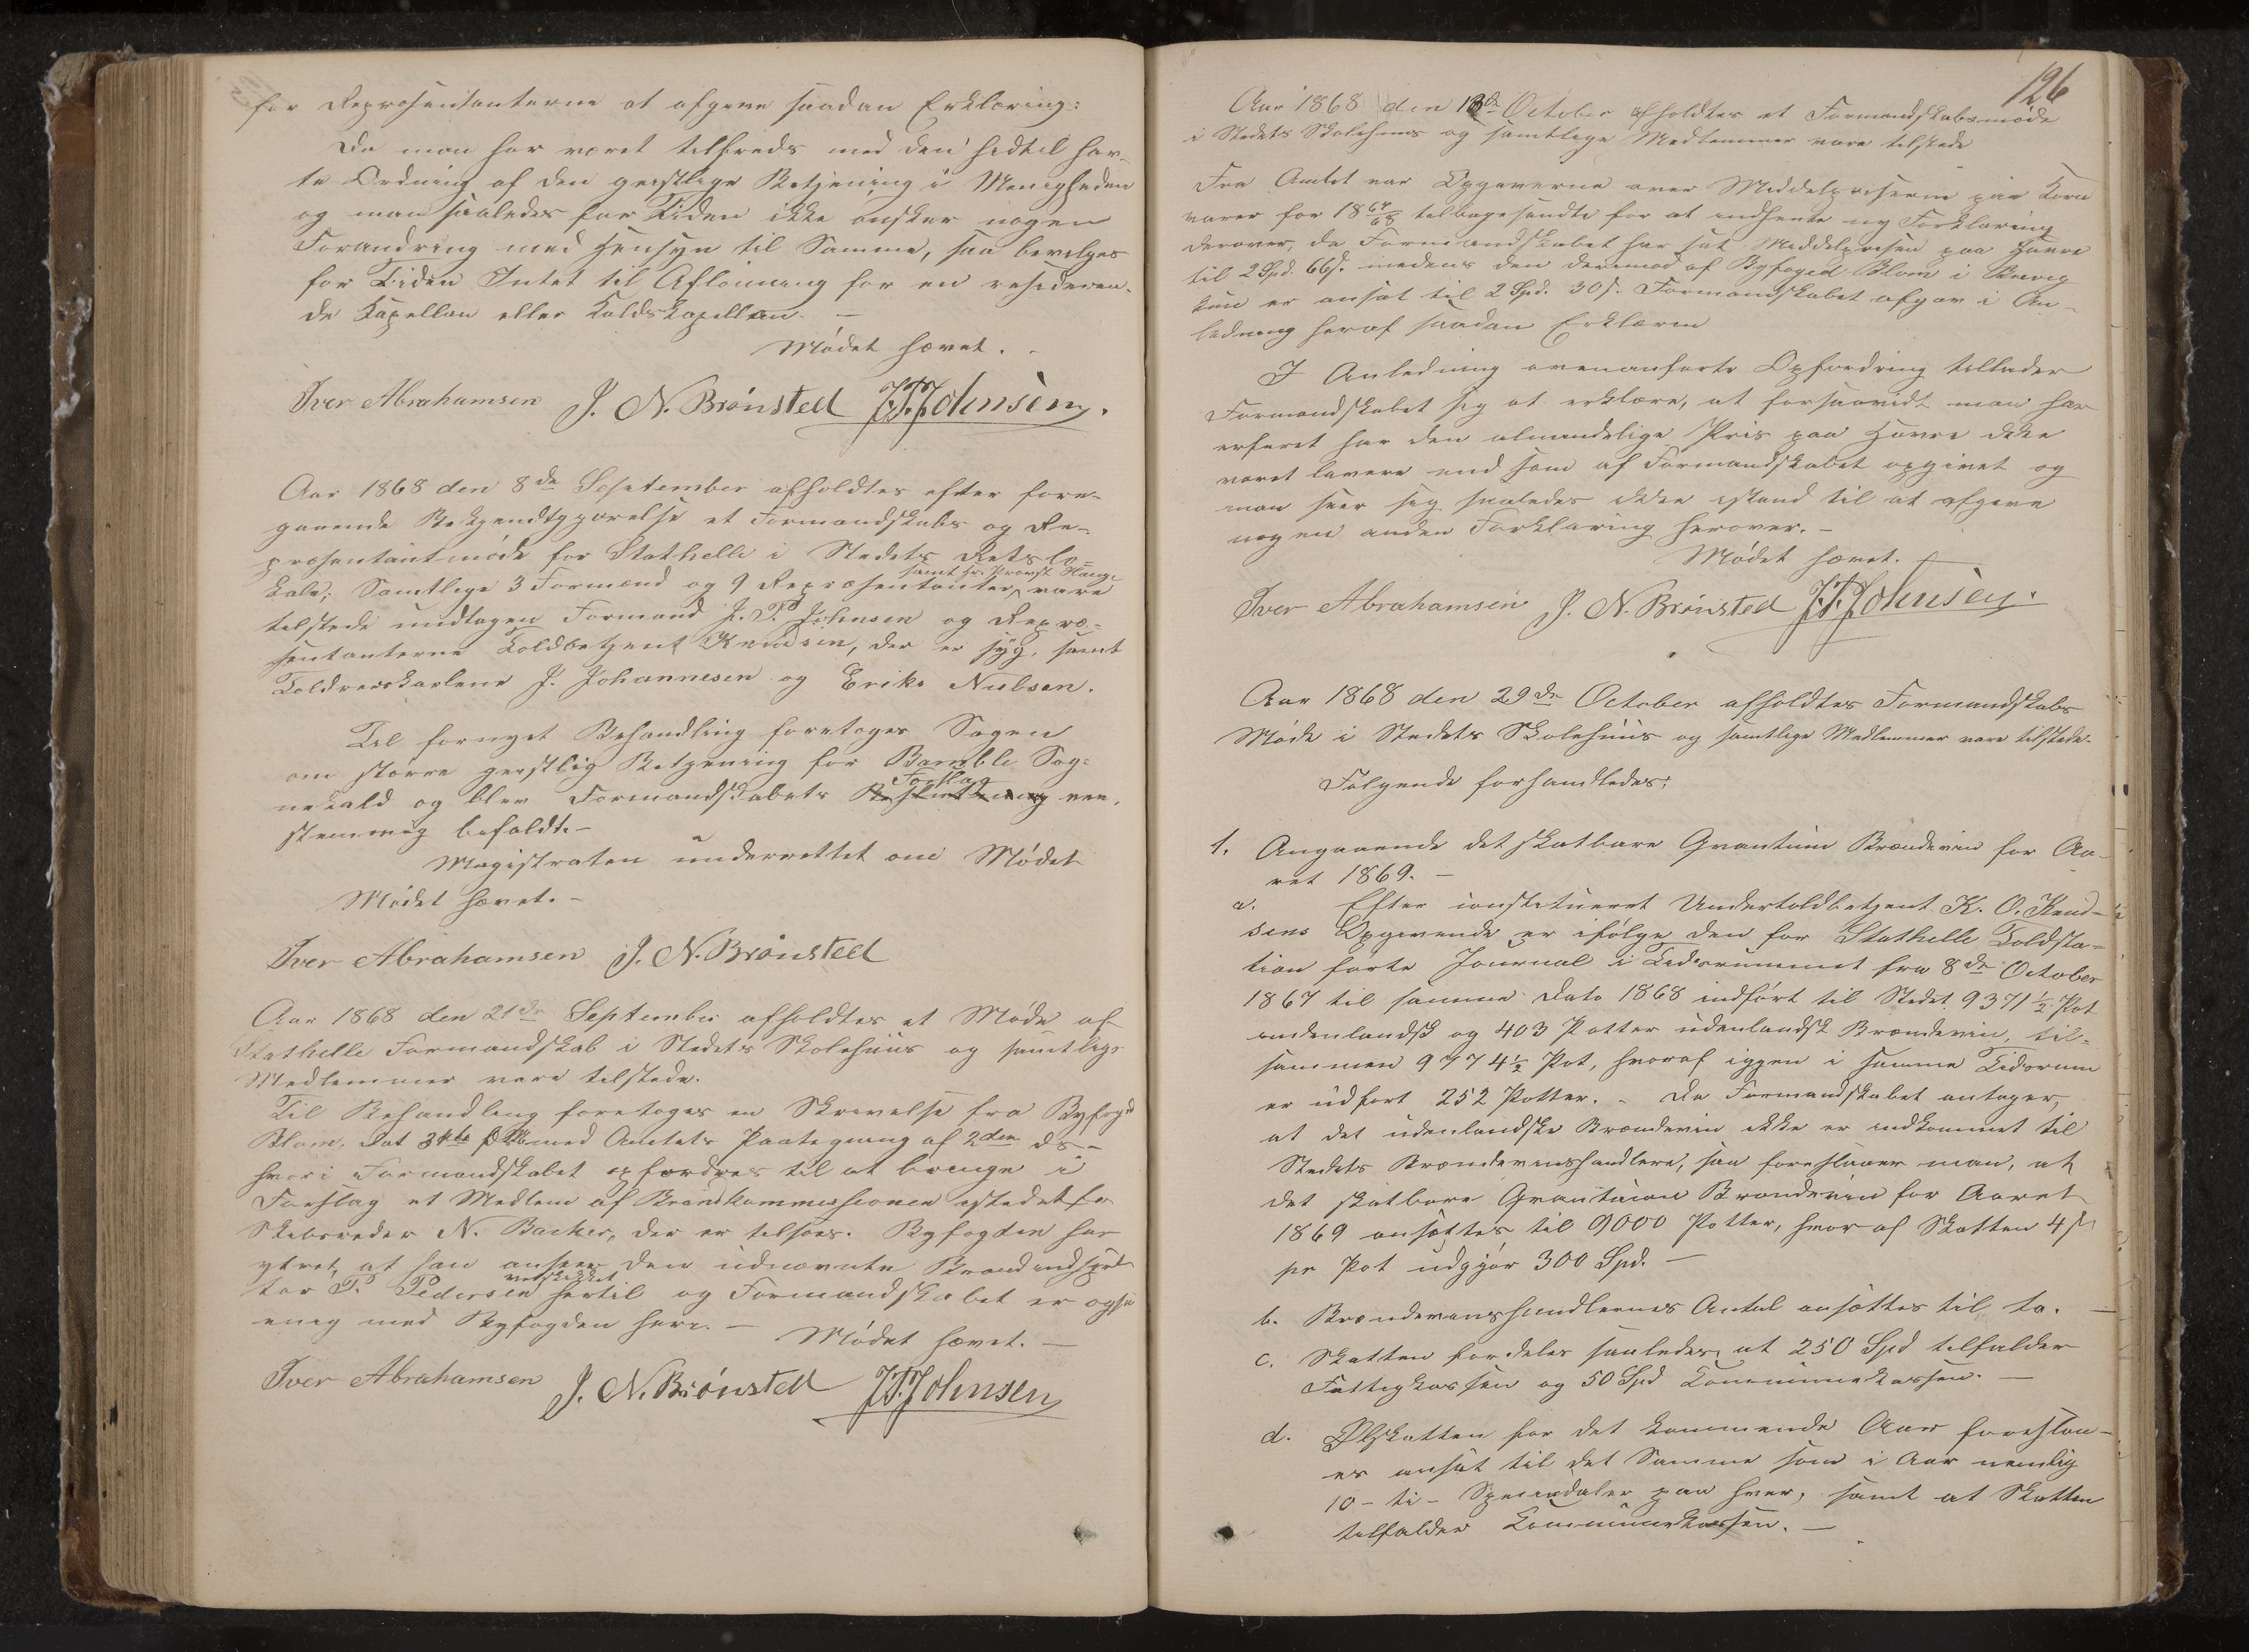 for Repræsentanterne at afgive saadan Erklæring:
Da man har været tilfreds med den hidtil hav-
te Ordning af den geistlige Betjening i Menigheden
og man saaledes for Tiden ikke ønsker nogen
Forandring med Hensyn til Samme, saa bevilges
for Tiden Intet til Aflønning for en resideren-
de Kapellan eller Kaldskapellan. –
Mødet hævet. –
Iver Abrahamsen J. N. Brønsted J.T.Johnsen.
Aar 1868 den 8de September afholdtes efter fore-
gaaende Bekjendtgjørelse et Formandskabs og Re-
præsentantmøde for Stathelle i Stedets Retslo-
kale; Samtlige 3 Formænd og 9 Repræsentanter, vare
samt Hr. Provst Hauge
tilstede undtagen Formand J. T. Johnsen og Repræ-
sentanterne Toldbetjent Knudsen, der er syg, samt
Toldroerskarlene J. Johannesen og Eriks Nielsen.
Til fornyet Behandling foretoges Sagen
om større geistlig Betjening for Bamble Sog-
nekald og blev Formandskabets Forslag een-
stemmig befaldt. –
Magistraten underrettet om Mødet
Mødet hævet. –
Iver Abrahamsen J. N. Brønsted
Aar 1868 den 21de September afholdtes et Møde af
Stathelle Formandskab i Stedets Skolehuus og samtlige
Medlemmer vare tilstede.
Til Behandling foretoges en Skrivelse fra Byfoged
Blom, Dat med Amtets Paategning af 2den ds –
hvori Formandskabet opfordres til at bringe i
Forslag et Medlem af Brandkommissionen istedetfor
Skibsreder N. Backer, der er tilsøes. Byfogden har
yttret, at han anseer den udnævnte Brandindspek-
tør P. Pedersen velskikket hertil og Formandskabet er ogsaa
enig med Byfogden heri. – Mødet hævet. –
Iver Abrahamsen J. N. Brønsted J.T.Johnsen
126
Aar 1868 den 13de October afholdtes et Formandskabsmøde
i Stedets Skolehuus og samtlige Medlemmer vare tilstede
Fra Amtet var Opgaverne over Middelpriserne paa Korn
varer for 1867/68 tilbagesendte for at indhente ny Forklaring
derover, da Formandskabet har sat Middelprisen paa Havre
til 2 Spd. 66 s. medens den derimod af Byfoged Blom i Brevig
kun er ansat til 2 Spd. 30 s. Formandskabet afgav i An-
ledning heraf saadan Erklæren
I Anledning ovenanførte Opfordring tillader
Formandskabet sig at erklære, at forsaavidt man har
erfaret har den almindelige Pris paa Havre ikke
været lavere end som af Formandskabet opgivet og
man seer sig saaledes ikke istand til at afgive
nogen anden Forklaring herover. –
Mødet hævet. –
Iver Abrahamsen J. N. Brønsted J.T.Johnsen.
Aar 1868 den 29de October afholdtes Formandskabs
Møde i Stedets Skolehuus og samtlige Medlemmer vare tilstede.
Følgende forhandledes:
1. Angaaende det skatbare Qvantum Brændeviin for Aa-
ret 1869. –
a. Efter constitueret Undertoldbetjent K. O. Knud-
sens Opgivende er ifølge den for Stathelle Toldsta-
tion førte Journal i Tidsrummet fra 8de October
1867 til samme Dato 1868 indført til Stedet 9371½ Pot
indenlandsk og 403 Potter udenlandsk Brændeviin, til-
sammen 9774½ Pot, hvoraf igjen i samme Tidsrum
er udført 252 Potter. – Da Formandskabet antager,
at det udenlandske Brændeviin ikke er indkommet til
Stedets Brændeviinshandlere, saa foreslaaer man, at
det skatbare Qvantum Brændeviin for Aaret
1869 ansættes til 9000 Potter, hvoraf Skatten 4 s
pr Pot udgjør 300 Spd. –
b. Brændeviinshandlernes Antal ansættes til to. –
c. Skatten fordeles saaledes, at 250 Spd tilfalder
Fattigkassen og 50 Spd Communekassen. –
d. Ølskatten for det kommende Aar foreslaa-
es ansat til det Samme som i Aar nemlig
10 – ti – Speciedaler paa hver, samt at Skatten
tilfalder Communekassen. –